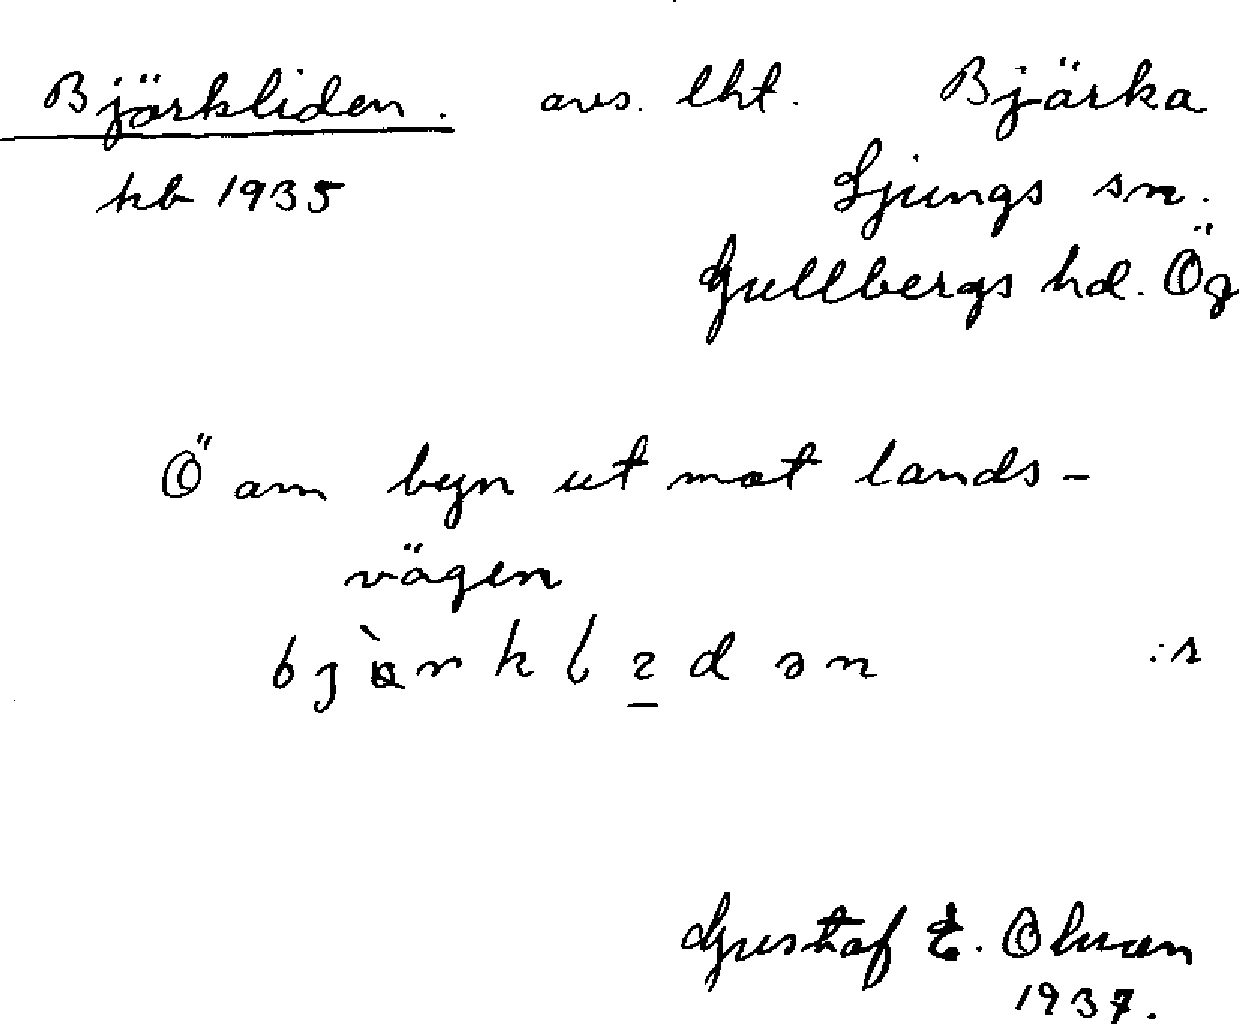 Bjärkliden. avs. lht. Bjärka
kb 1935 Ljungs sn.
Gullbergs hd. Ög
Ö om byn ut mot lands-
vägen
:s
Gustaf E. Olson
1937.